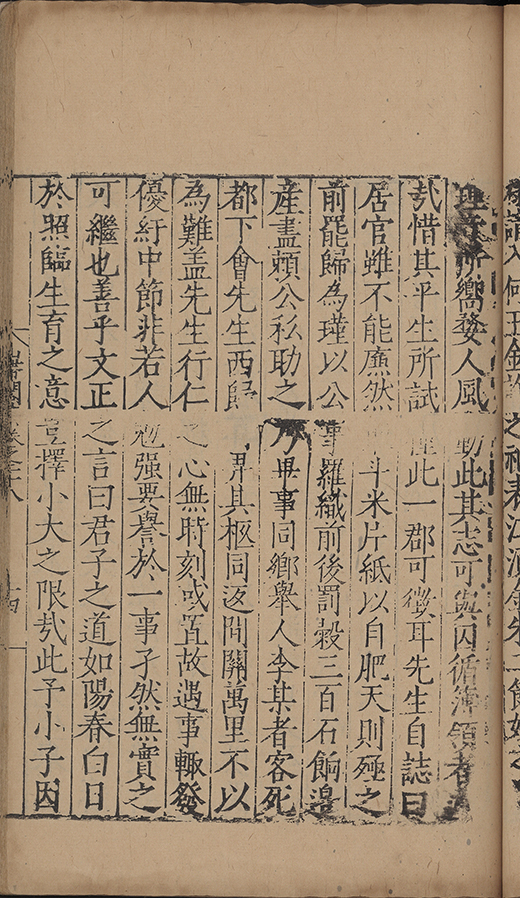 所嚮婺人風動此其志可與因循簿領者
哉惜其平生所試僅此一郡可徵耳先生自誌曰
居官雖不能廉然斗米片紙以自肥天則殛之
前罷歸為瑾以公事羅織前後罰穀三百石餉邊
産盡頼公私助之乃畢事同鄉舉人李某者客死
都下會先生西歸舁其柩同返間關萬里不以
為難盖先生行仁之心無時刻或置故遇事輙發
優紆中節非若人勉强要譽於一事孑然無實之
可繼也善乎文正之言曰君子之道如陽春白日
於照臨生育之意豈擇小大之限哉此予小子因
卷之十八